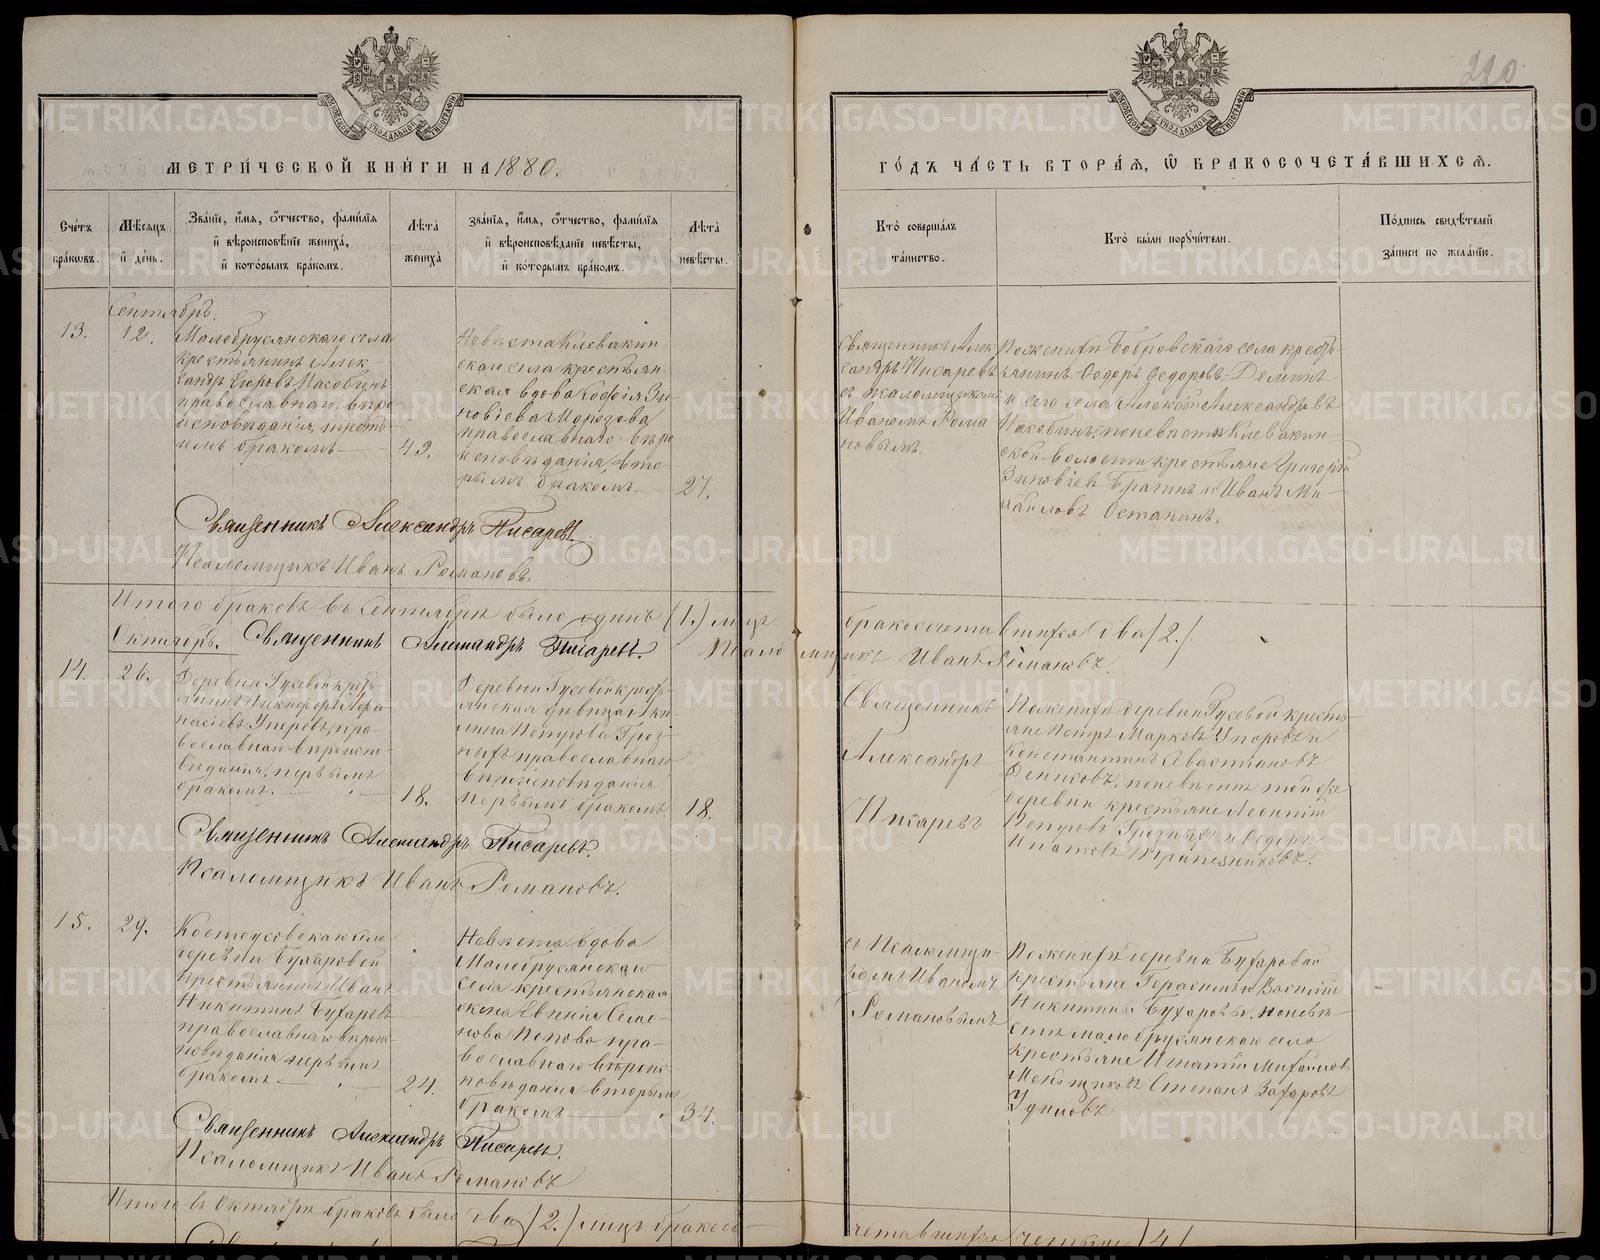 220
МЕТРИ́ЧЕСКОЙ КНИ́ГИ НА 1880.
ГО́ДЪ ЧА́СТЬ ВТОРА́Ѧ, Ѿ БРАКОСОЧЕТА́ВШИХСѦ.
Счéтъ бра́кѡвъ.
Мѣ́сѧцъ и҆ де́нь.
Зва́нїе, и҆́мѧ, ѻ҆́тчество, фами́лїѧ и҆ вѣроисповѣ́нїе жениха̀, и҆ кото́рымъ бра́комъ.
Лѣ́та жениха̀
зва́нїѧ, и҆́мѧ, ѻ҆́тчество, фами́лїѧ и҆ вѣроисповѣ́данїе невѣ́сты, и҆ кото́рымъ бра́комъ.
Лѣ́та невѣ́сты.
Кто̀ соверша́лъ та́инство.
Кто̀ бы́ли порꙋчи́тели.
По́дпись свидѣ́телей за́писи по жела́нїю.
Сентябрь.
13.
12.
Малобрусянскаго села
крестьянинъ Алек
сандръ Егоровъ
православнаго вѣро
исповѣданія, треть
имъ бракомъ
42.
Невѣста Клевакин
скаго села крестьян
ская вдова Софія Зи
новіева Морозова
православнаго вѣро
исповѣданія, вто
рымъ бракомъ
27.
Священникъ Алек
сандръ Писаревъ
съ псаломщикомъ
Иваномъ Рома
новымъ.
По женихѣ Бобровскаго села кресть
янинъ Ѳедоръ Ѳедоровъ Деминъ
и сего села Алексѣй Александровъ
по невѣстѣ Клевакин
ской волости крестьяне Григорій
Зиновіевъ Брагинъ и Иванъ Ми
хайловъ Останинъ.
Священникъ Александръ Писаревъ
Псаломщикъ Иванъ Романовъ.
Итого браковъ въ Сентябрѣ было одинъ (1.) лицъ
бракосочетавшихся два /2./
Октябрь. Священникъ Александръ Писаревъ. Псаломщикъ Иванъ Романовъ
14.
26.
Деревни Гусевой кресть
янинъ Никифоръ Афа
насіевъ Упоровъ, пра
вославнаго вѣроиспо
вѣданія, первымъ
бракомъ.
18.
Деревни Гусевой кресть
янская дѣвица Аки
лина Петрова Гроз
ныхъ православнаго
вѣроисповѣданія
первымъ бракомъ
18.
Священникъ
Александръ
Писаревъ
По женихѣ деревни Гусевой кресть
яне Петръ Марковъ Упоровъ и
Константинъ Авастьяновъ
по невѣстѣ той же
деревни крестьяне Леонтій
Петровъ Грозныхъ и Ѳедоръ
Ипатовъ Трапезниковъ.
Священникъ Александръ Писаревъ.
Псаломщикъ Иванъ Романовъ.
15.
29.
Костоусовскаго села
деревни Бухаровой
крестьянинъ Иванъ
Никитинъ Бухаревъ
православнаго вѣроис
повѣданія первымъ
бракомъ
24.
Невѣста вдова
Малобрусянскаго
села крестьянская
жена Евгенія Семе
нова Попова пра
вославнаго вѣроис
повѣданія вторымъ
бракомъ
34.
съ Псаломщи
комъ Иваномъ
Романовымъ
По женихѣ деревни Бухаровой
крестьяне Герасимъ и Василій
Никитины Бухаровы, по невѣ
стѣ малобрусянскаго села
крестьяне Игнатій Михайловъ
Меньщиковъ Степанъ Захаровъ
Удиловъ
Священникъ Александръ Писаревъ.
Псаломщикъ Иванъ Романовъ
Итого въ Октябрѣ браковъ было два /2./ лицъ бракосо
четавшихся четыре /4/
METRIKI.GASO-URAL.RU